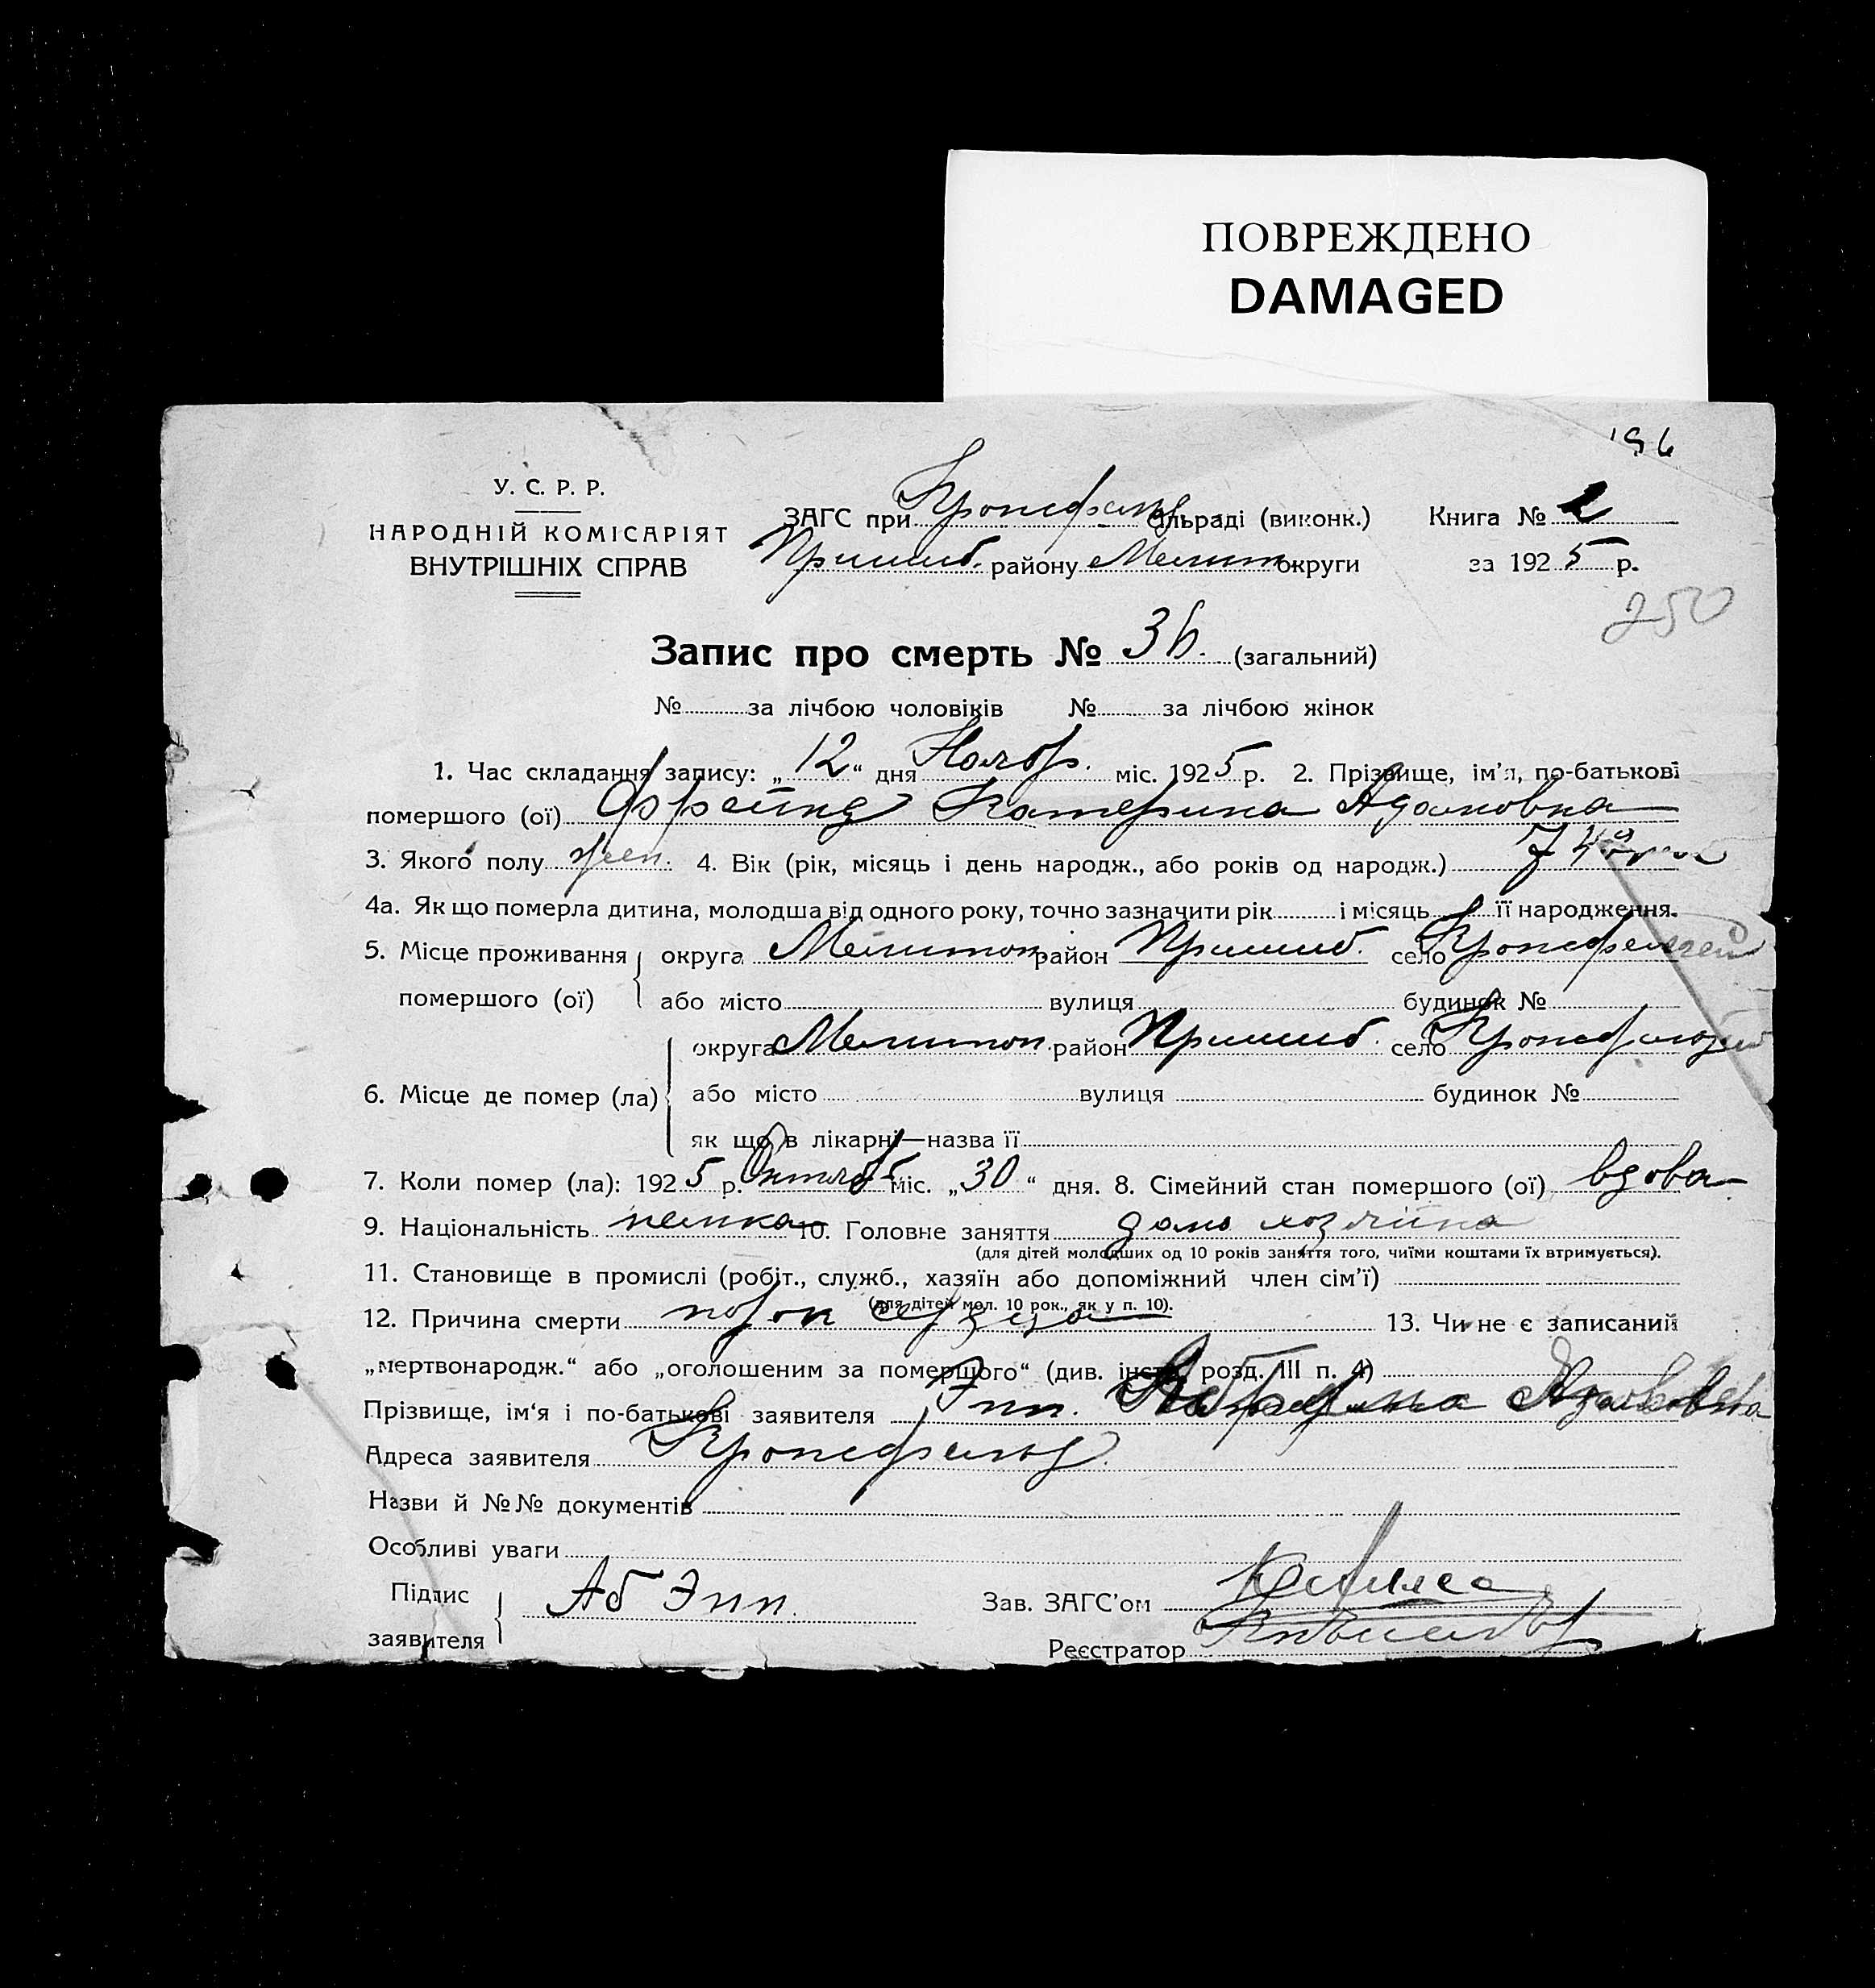 ПОВРЕЖДЕНО
DAMAGED
196
У. С. Р. Р.
НАРОДНІЙ КОМІСАРІЯТ
ВНУТРІШНІХ СПРАВ
ЗАГС при Кронсфельд сільраді (виконк.)
Пришиб. району Мелит округи
Книга № 2
за 1925 р.
250
Запис про смерть № 36. (загальний)
№ за лічбою чоловіків № за лічбою жінок
1. Час складання запису: „12“ дня Ноябр. міс. 1925 р. 2. Прізвище, ім'я, по-батькові
помершого (ої) Фрейнд Катерина Адамовна
3. Якого полу жен. 4. Вік (рік, місяць і день народж., або років од народж.) 74
4а. Як що померла дитина, молодша від одного року, точно зазначити рік і місяць її народження.
5. Місце проживання помершого (ої) округа Мелитоп. район Пришиб. село
або місто вулиця будинок №
6. Місце де помер (ла) округа Мелитоп. район Пришиб. село
або місто вулиця будинок №
як що в лікарні—назва її
7. Коли помер (ла): 1925 р. Октяб міс. „30“ дня. 8. Сімейний стан помершого (ої) вдова
9. Національність немка 10. Головне заняття дом хозяйка
(для дітей молодших од 10 років заняття того, чиїми коштами їх втримується).
11. Становище в промислі (робіт., служб., хазяїн або допоміжний член сім'ї)
(для дітей мол. 10 рок., як у п. 10).
12. Причина смерти порок сердца 13. Чи не є записаний
„мертвонародж.“ або „оголошеним за помершого“ (див. інстр. розд. III п. 4)
Прізвище, ім‘я і по-батькові заявителя Эпп.
Адреса заявителя Кронсфельд
Назви й №№ документів
Особливі уваги
Підпис заявителя Аб Эпп.
Зав. ЗАГС'ом
Реєстратор